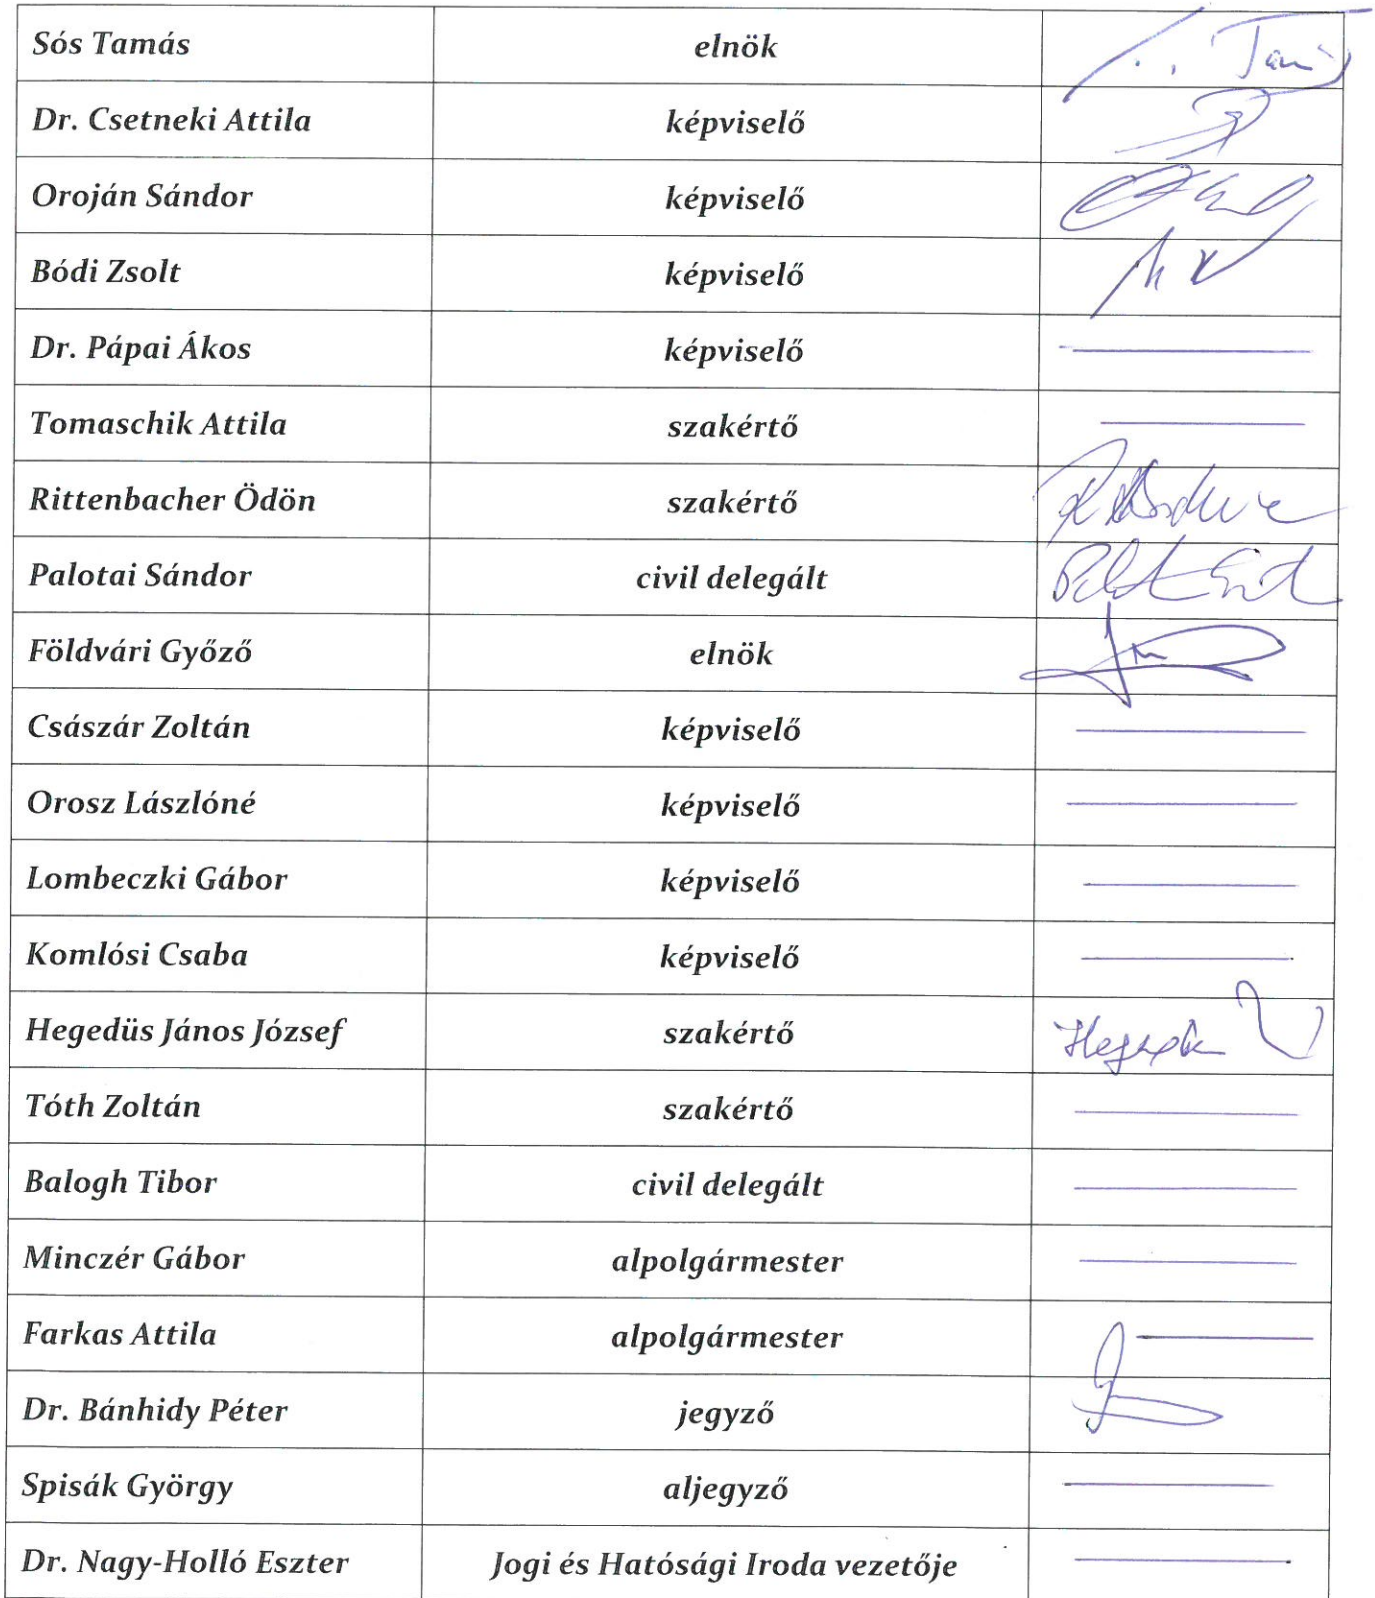 Sós Tamás elnök
Dr. Csetneki Attila képviselő
Oroján Sándor képviselő
Bódi Zsolt képviselő
Dr. Pápai Ákos képviselő
Tomaschik Attila szakértő
Rittenbacher Ödön szakértő
Palotai Sándor civil delegált
Földvári Győző elnök
Császár Zoltán képviselő
Orosz Lászlóné képviselő
Lombeczki Gábor képviselő
Komlósi Csaba képviselő
Hegedüs János József szakértő
Tóth Zoltán szakértő
Balogh Tibor civil delegált
Minczér Gábor alpolgármester
Farkas Attila alpolgármester
Dr. Bánhidy Péter jegyző
Spisák György aljegyző
Dr. Nagy-Holló Eszter Jogi és Hatósági Iroda vezetője